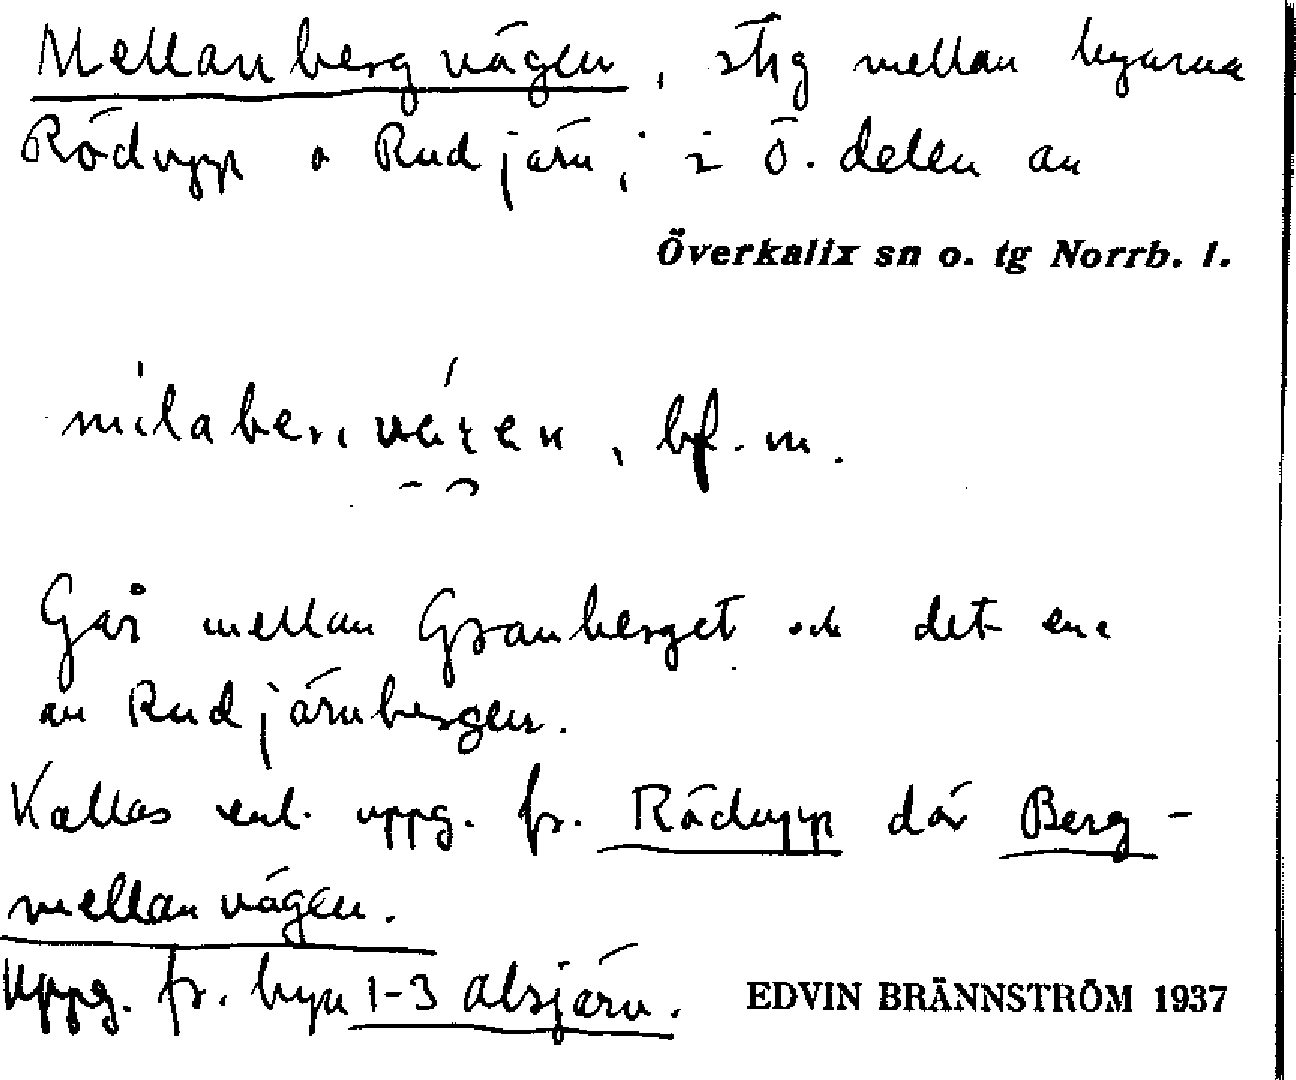 Mellanbergvägen, stig mellan byarna
Rödupp o Rudjärv, i Ö. delen av
Överkalix sn o. tg Norrb. l.
bf. m.
Går mellan Granberget och det ena
av Rudjärvbergen.
Kallas enl. uppg. fr. Rödupp där Berg-
mellanvägen.
Uppg. fr. byn 1-3 Alsjärv. EDVIN BRÄNNSTRÖM 1937